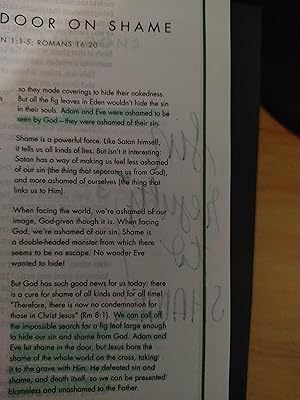 DOOR ON SHAME
N 1:1-5; ROMANS 16:20
so they made coverings to hide their nakedness.
But all the fig leaves in Eden wouldn't hide the sin
in their souls. Adam and Eve were ashamed to be
seen by God—they were ashamed of their sin.
Shame is a powerful force. Like Satan himself,
it tells us all kinds of lies. But isn't it interesting:
Satan has a way of making us feel less ashamed
of our sin (the thing that separates us from God),
and more ashamed of ourselves (the thing that
links us to Him).
When facing the world, we're ashamed of our
image, God-given though it is. When facing
God, we're ashamed of our sin. Shame is
a double-headed monster from which there
seems to be no escape. No wonder Eve
wanted to hide!
But God has such good news for us today: there
is a cure for shame of all kinds and for all time!
"Therefore, there is now no condemnation for
those in Christ Jesus" (Rm 8:1). We can call off
the impossible search for a fig leaf large enough
to hide our sin and shame from God. Adam and
Eve let shame in the door, but Jesus bore the
shame of the whole world on the cross, taking
it to the grave with Him. He defeated sin and
shame, and death itself, so we can be presented
blameless and unashamed to the Father.